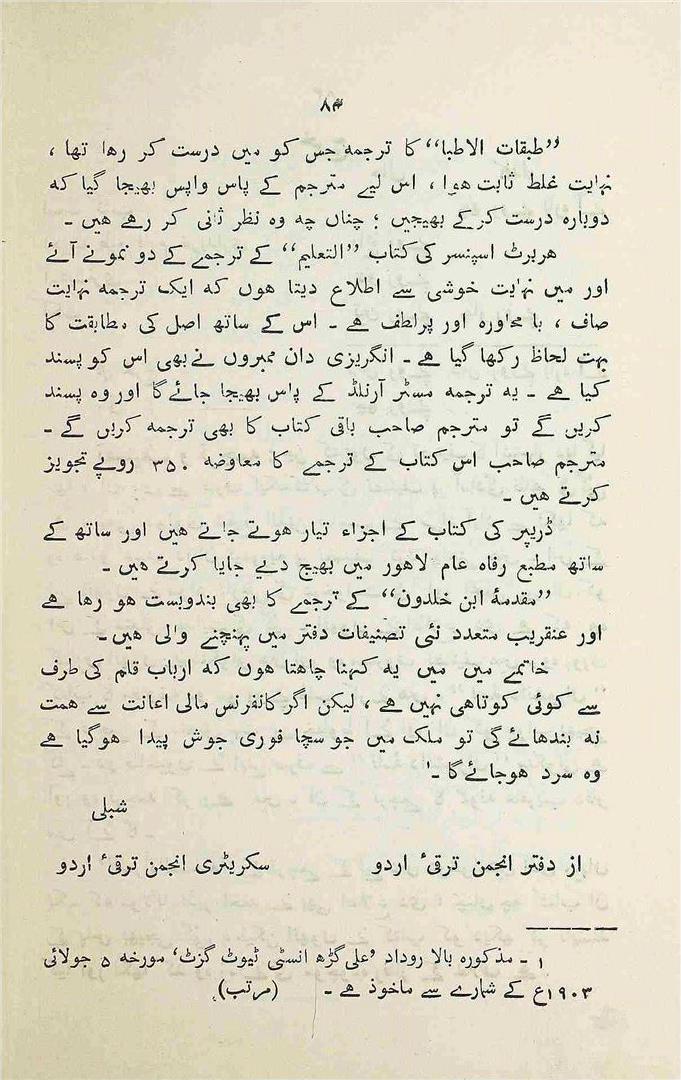 ۸۴
”طبقات الاطبا“ کا ترجمه جس کو میں درست کر رہا تھا ،
نہایت غلط ثابت ہوا ، اس لیے مترجم کے پاس واپس بھیجا گیا که
دوبارہ درست کرکے بھیجیں ؛ چناں چه وہ نظر ثانی کر رہے ہیں ۔
ہربرٹ اسپنسر کی کتاب ”التعلیم“ کے ترجمے کے دو نمونے آئے
اور میں نہایت خوشی سے اطلاع دیتا ہوں که ایک ترجمه نہایت
صاف ، با محاورہ اور پرلطف ہے ۔ اس کے ساتھ اصل کی مطابقت کا
بہت لحاظ رکھا گیا ہے ۔ انگریزی دان ممبروں نے بھی اس کو پسند
کیا ہے ۔ یه ترجمه مسٹر آرنلڈ کے پاس بھیجا جائے گا اور وہ پسند
کریں گے تو مترجم صاحب باقی کتاب کا بھی ترجمه کریں گے ۔
مترجم صاحب اس کتاب کے ترجمے کا معاوضه ۳۵۰ روپے تجویز
کرتے ہیں ۔
ڈریپر کی کتاب کے اجزاء تیار ہوتے جاتے ہیں اور ساتھ کے
ساتھ مطبع رفاہ عام لاہور میں بھیج دیے جایا کرتے ہیں ۔
”مقدمۂ ابن خلدون“ کے ترجمے کا بھی بندوبست ہو رہا ہے
اور عنقریب متعدد نئی تصنیفات دفتر میں پہنچنے والی ہیں ۔
خاتمے میں میں یه کہنا چاہتا ہوں که ارباب قلم کی طرف
سے کوئی کوتاہی نہیں ہے ، لیکن اگر کانفرنس مالی اعانت سے ہمت
نه بندھائے گی تو ملک میں جو سچا فوری جوش پیدا ہوگیا ہے
وہ سرد ہوجائے گا ۔'
شبلی
از دفتر انجمن ترقیٔ اردو سکریٹری انجمن ترقیٔ اردو
۱ ۔ مذکورہ بالا روداد ’علی گڑھ انسٹی ٹیوٹ گزٹ‘ مورخه ۵ جولائی
۱۹۰۳ع کے شمارے سے ماخوذ ہے ۔ (مرتب)